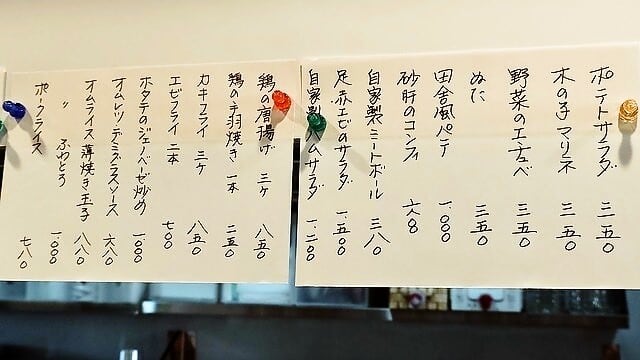 ポテトサラダ 三五〇
木の子マリネ 三五〇
野菜のエチュベ 三五〇
ぬた 三五〇
田舎風パテ 一、〇〇〇
砂肝のコンフィ 六八〇
自家製ミートボール 三八〇
足赤エビのサラダ 一、五〇〇
自家製ハムサラダ 一、二〇〇
鶏の唐揚げ 三ヶ 八五〇
鶏の手羽焼き 一本 二五〇
カキフライ 三ヶ 八五〇
エビフライ 二本 七〇〇
ホタテのジェノベーゼ炒め 一〇〇〇
オムレツ デミグラスソース 六八〇
オムライス 薄焼き玉子 八八〇
〃 ふわとろ 一、〇〇〇
ポークライス 七八〇